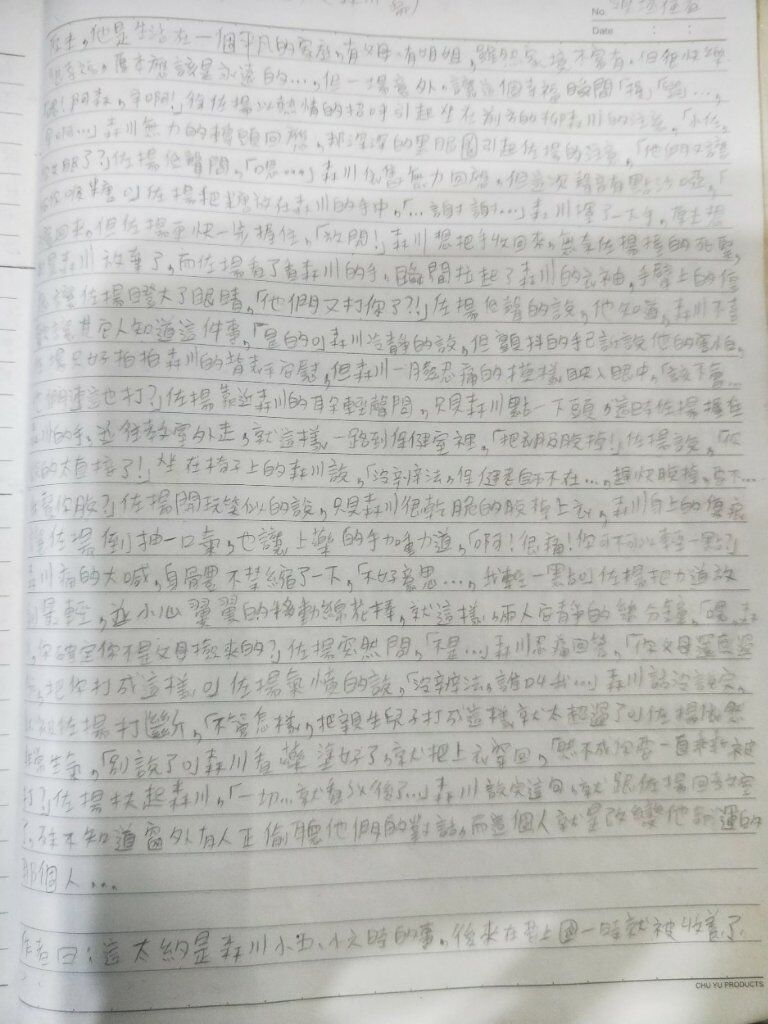 (森川
No
Date : :
他是生活在一個平凡的家庭,有父母,有姐姐,雖然家境不富有,但卻快樂
原本應該是永遠的...,但一場意外,讓這個幸福瞬間「
阿森,早啊!」佐揚以熱情的招呼引起坐在前方的柳森川的注意,「小佐,
早啊...」森川無力的轉頭回應,那深深的黑眼圈引起佐揚的注意,「他們又讓
了?」佐揚低聲問,「嗯...」森川依舊無力回應,但這次聲音有點沙啞,「
喉糖。」佐揚把喉糖放在森川的手中,「...謝謝...」森川握了一下手,原本想
回來,但佐揚更快一步握住,「放開!」森川想把手收回來,無奈佐揚握的死緊,
森川放棄了,而佐揚看了看森川的手,瞬間拉起了森川的衣袖,手臂上的傷
讓佐揚瞪大了眼睛,「他們又打你了?!」佐揚低聲的說,他知道,森川不喜
其它人知道這件事,「是的。」森川冷靜的說,但顫抖的手已訴說他的害怕,
佐揚只好拍拍森川的背表示安慰,但森川一臉忍痛的模樣映入眼中,「該不會...
他們連這也打?」佐揚靠近森川的耳朵輕聲問,只見森川點一下頭,這時佐揚握住
森川的手,並往教室外走,就這樣一路到保健室裡,「把衣服脫掉!」佐揚說,「
的太直接了!」坐在椅子上的森川說,「沒辦法,保健老師不在...,趕快脫掉,
幫你脫?」佐揚開玩笑似的說,只見森川很乾脆的脫掉上衣,森川身上的傷痕
讓佐揚倒抽一口氣,也讓上藥的手加重力道,「啊!很痛!你可不可以輕一點?」
森川痛的大喊,身體不禁縮了一下,「不好意思...,我輕一點。」佐揚把力道放
到最輕,並小心翼翼的移動棉花棒,就這樣,兩人安靜的幾分鐘,「喂,
你確定你不是父母撿來的?」佐揚突然問,「不是...」森川忍痛回答,「你父母還真
把你打成這樣。」佐揚氣憤的說,「沒辦法,誰叫我...」森川話沒說完,
佐揚打斷,「不管怎樣,把親生兒子打成這樣就太超過了。」佐揚依然
非常生氣,「別說了。」森川看藥塗好了,就把上衣穿回,「然不成你要一直乖乖被
打?」佐揚扶起森川,「一切...就看以後了...」森川說完這句,就跟佐揚回教室
了,殊不知道窗外有人正偷聽他們的對話,而這個人就是改變他命運的
那個人...
作者曰:這大約是森川小五、小六時的事,後來在要上國一時就被收養了。
CHU YU PRODUCTS